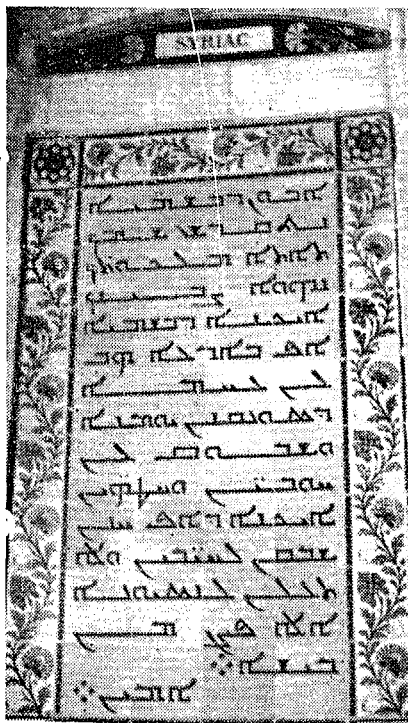 SYRIAC
ܐܒܘܢ ܕܒܫܡܝܐ
ܢܬܩܕܫ ܫܡܟ
ܬܐܬܐ ܡܠܟܘܬܟ
ܢܗܘܐ ܨܒܝܢܟ
ܐܝܟܢܐ ܕܒܫܡܝܐ
ܐܦ ܒܐܪܥܐ ܗܒ
ܠܢ ܠܚܡܐ
ܕܣܘܢܩܢܢ ܝܘܡܢܐ
ܘܫܒܘܩ ܠܢ
ܚܘܒܝ̈ܢ ܘܚܛܗܝܢ
ܐܝܟܢܐ ܕܐܦ ܚܢܢ
ܫܒܩܢ ܠܚܝ̈ܒܝܢ ܘܠܐ
ܬܥܠܢ ܠܢܣܝܘܢܐ
ܐܠܐ ܦܨܢ ܡܢ
ܒܝܫܐ ܀
ܐܡܝܢ ܀